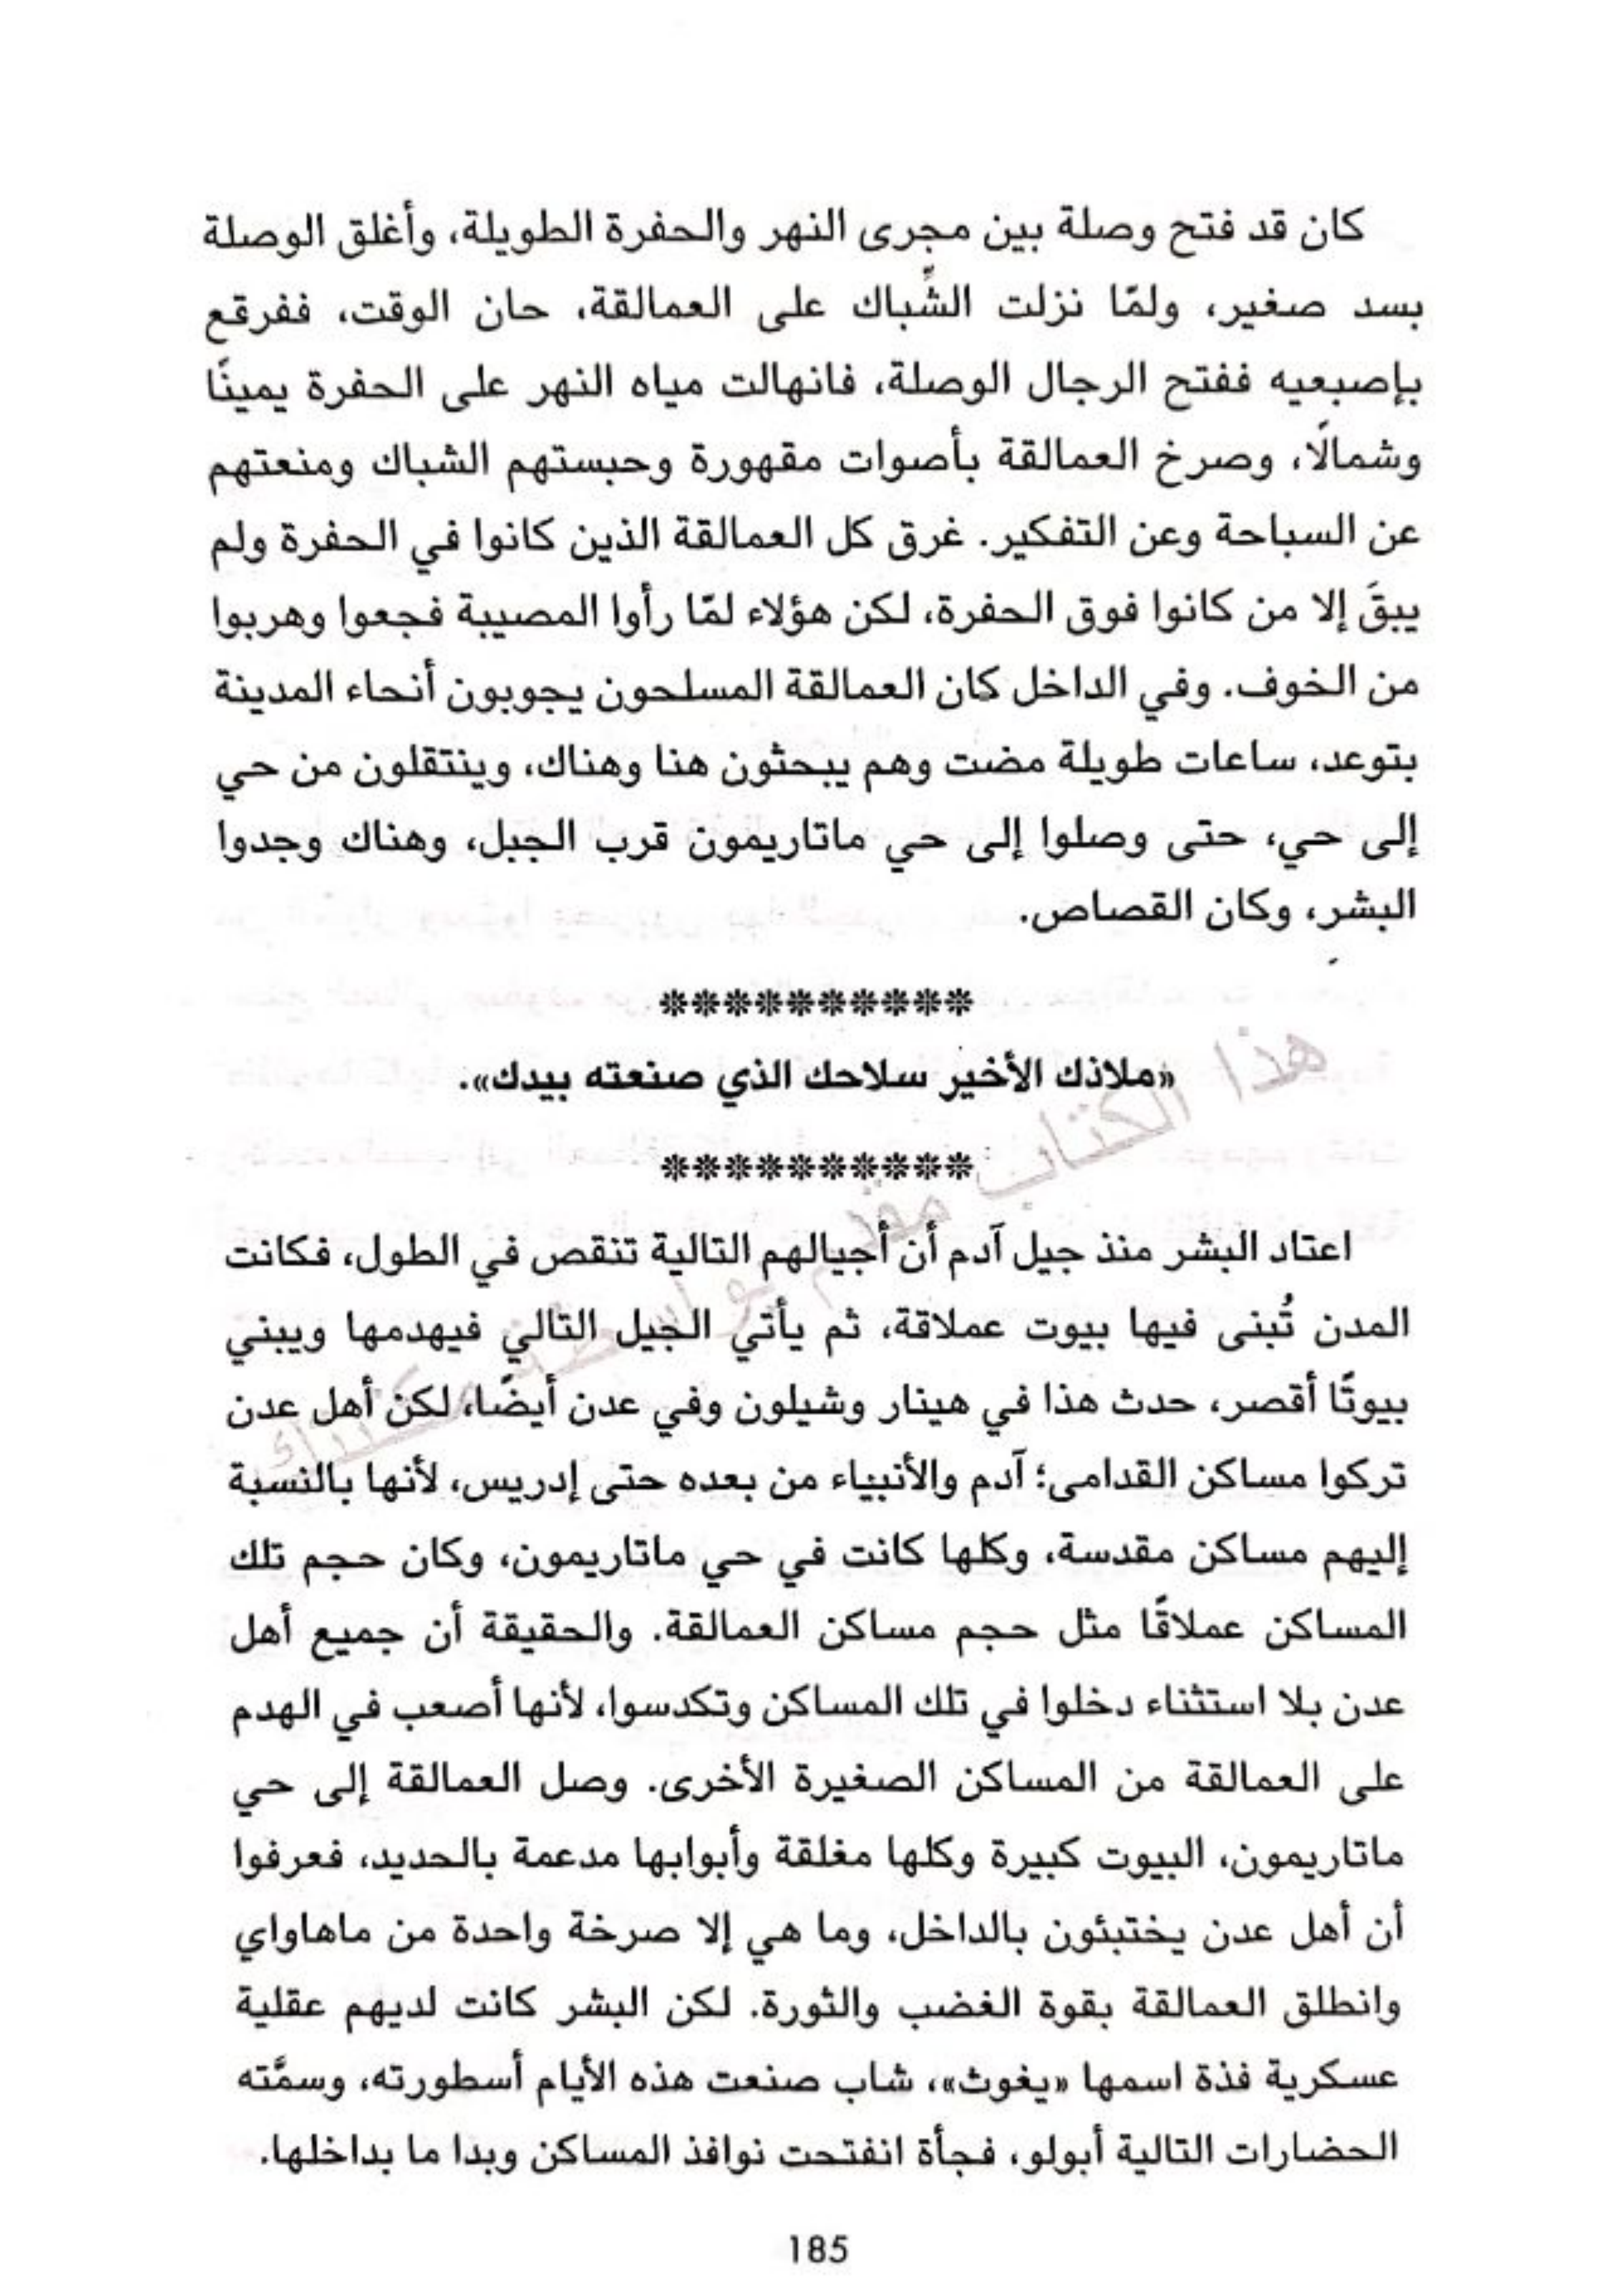 كان قد فتح وصلة بين مجرى النهر والحفرة الطويلة، وأغلق الوصلة
بسد صغير، ولمّا نزلت الشِّباك على العمالقة، حان الوقت، ففرقع
بإصبعيه ففتح الرجال الوصلة، فانهالت مياه النهر على الحفرة يمينًا
وشمالًا، وصرخ العمالقة بأصوات مقهورة وحبستهم الشباك ومنعتهم
عن السباحة وعن التفكير. غرق كل العمالقة الذين كانوا في الحفرة ولم
يبقَ إلا من كانوا فوق الحفرة، لكن هؤلاء لمّا رأوا المصيبة فجعوا وهربوا
من الخوف. وفي الداخل كان العمالقة المسلحون يجوبون أنحاء المدينة
بتوعد، ساعات طويلة مضت وهم يبحثون هنا وهناك، وينتقلون من حي
إلى حي، حتى وصلوا إلى حي ماتاريمون قرب الجبل، وهناك وجدوا
البشر، وكان القصاص.
**********
«ملاذك الأخير سلاحك الذي صنعته بيدك».
**********
هذا الكتاب مقدم بواسطة مكتبتك
اعتاد البشر منذ جيل آدم أن أجيالهم التالية تنقص في الطول، فكانت
المدن تُبنى فيها بيوت عملاقة، ثم يأتي الجيل التالي فيهدمها ويبني
بيوتًا أقصر، حدث هذا في هينار وشيلون وفي عدن أيضًا، لكن أهل عدن
تركوا مساكن القدامى؛ آدم والأنبياء من بعده حتى إدريس، لأنها بالنسبة
إليهم مساكن مقدسة، وكلها كانت في حي ماتاريمون، وكان حجم تلك
المساكن عملاقًا مثل حجم مساكن العمالقة. والحقيقة أن جميع أهل
عدن بلا استثناء دخلوا في تلك المساكن وتكدسوا، لأنها أصعب في الهدم
على العمالقة من المساكن الصغيرة الأخرى. وصل العمالقة إلى حي
ماتاريمون، البيوت كبيرة وكلها مغلقة وأبوابها مدعمة بالحديد، فعرفوا
أن أهل عدن يختبئون بالداخل، وما هي إلا صرخة واحدة من ماهاواي
وانطلق العمالقة بقوة الغضب والثورة. لكن البشر كانت لديهم عقلية
عسكرية فذة اسمها «يغوث»، شاب صنعت هذه الأيام أسطورته، وسمَّته
الحضارات التالية أبولو، فجأة انفتحت نوافذ المساكن وبدا ما بداخلها.
185